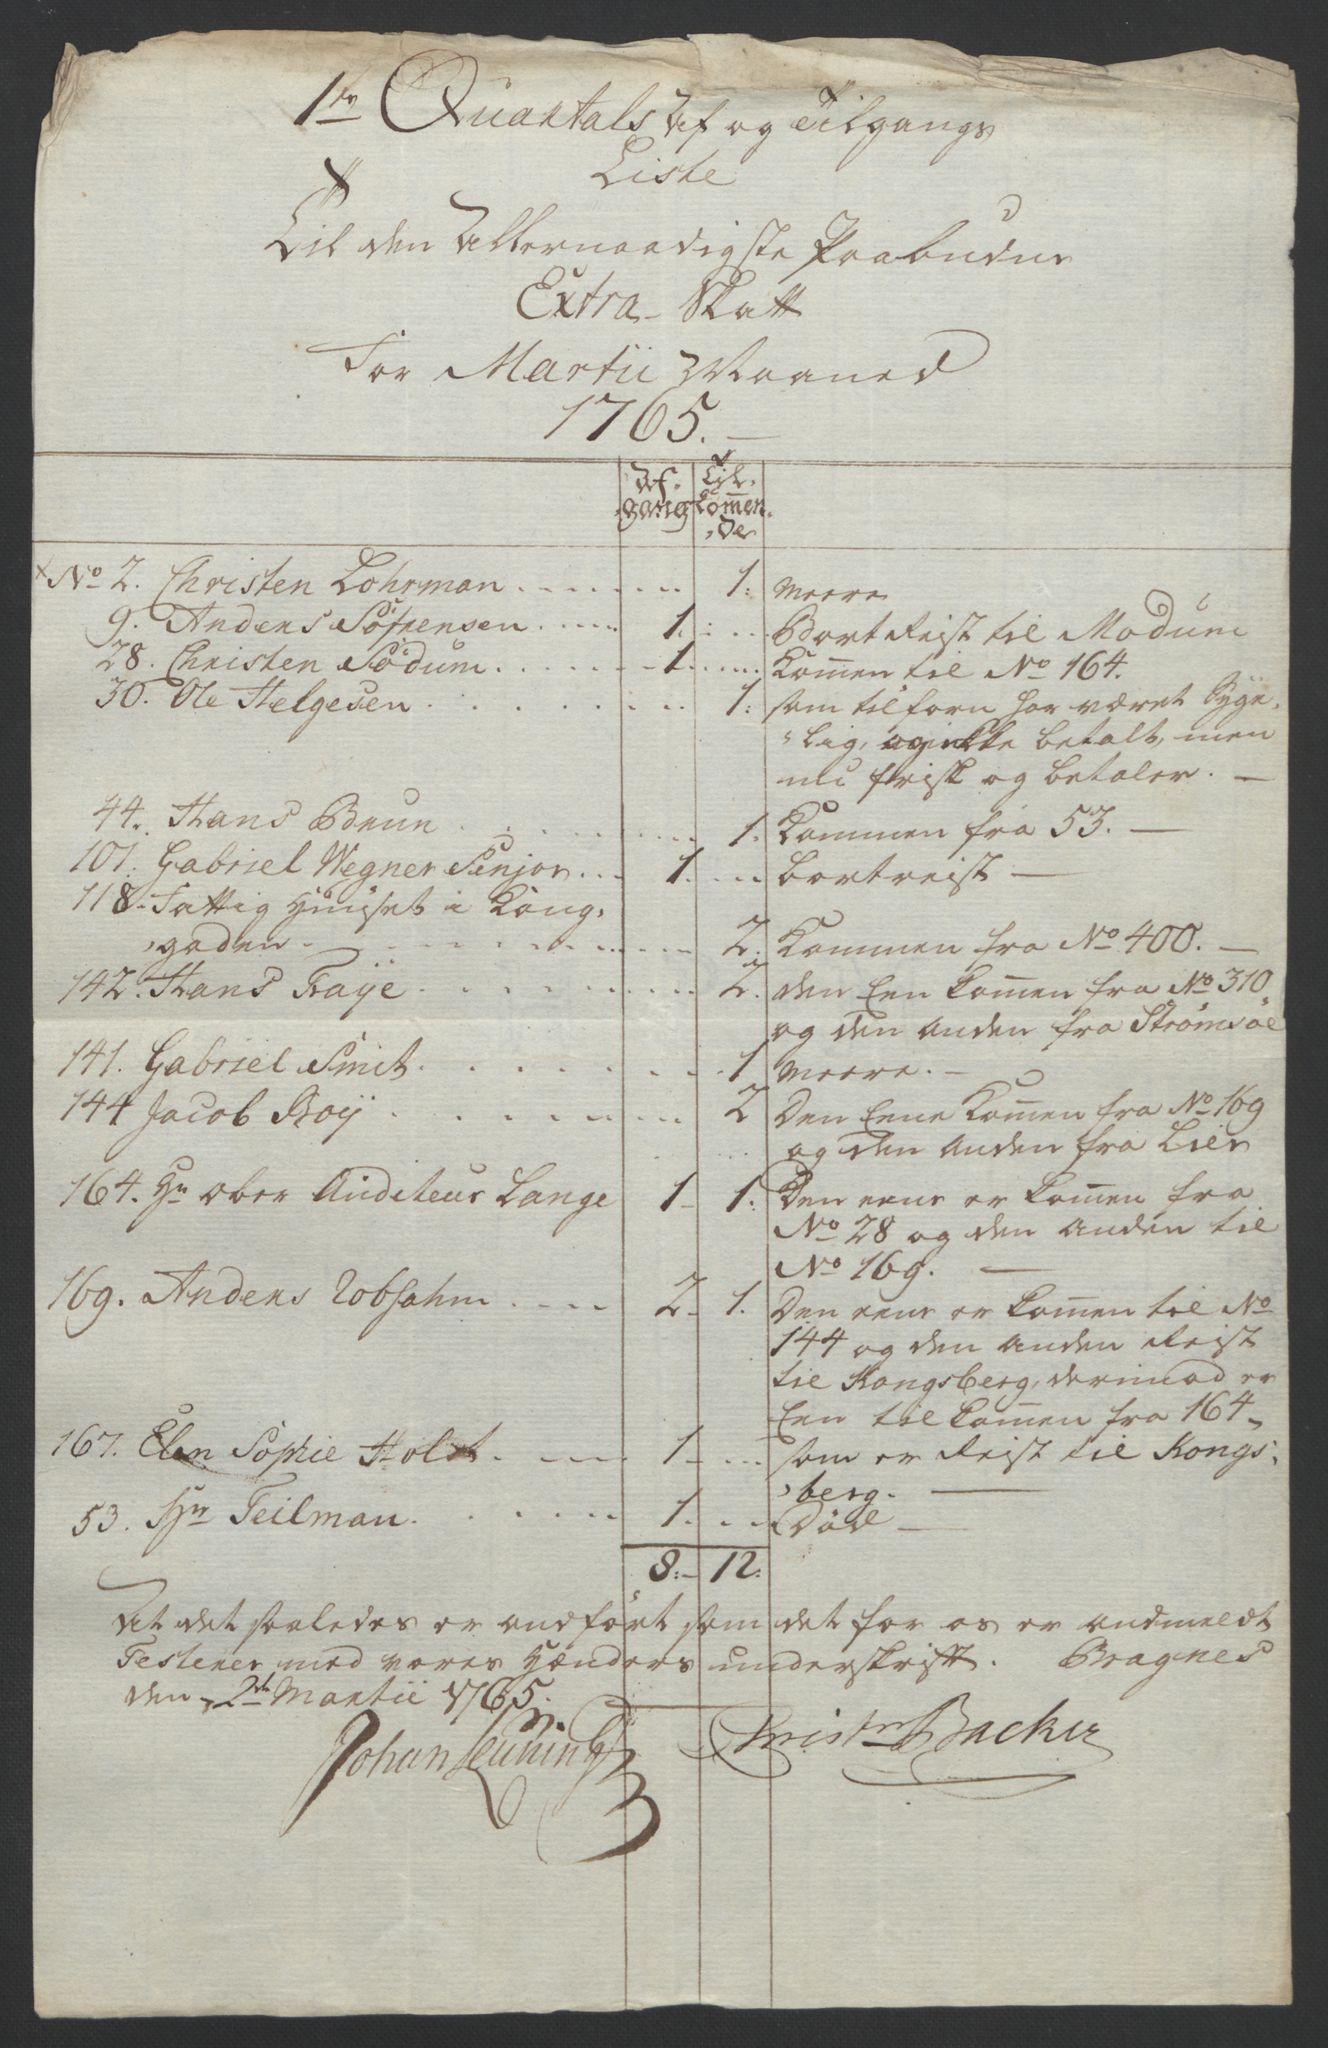 1ste Quartals Af og Tilgangs
Liste
Til den Allernaadigste Paabudne
Extra Skatt
For Martii Maaned
1765.
Af- gang Til- kom̅en- de
No 2. Christen Lohrman 1: meere
9. Anders Sörensen 1. Bort Reist til Modum
28. Christen Södum 1 Kom̅en til No 164.
30. Ole Helgesen 1: som tilforn har været Syge-
lig, og ikke betalt, men
nu frisk og betaler.
44. Hans Bruun 1. Kommen fra 53.
101. Gabriel Wegner Senjor 1. bortreist
118. Fattig Huuset i Kong-
gaden 2. Kommen fra No 400.
142. Hans Faÿe 2. den Een kom̅en fra No 310
og den anden fra Strömsöe
141. Gabriel Smit 1 meere.
144 Jacob Roÿ 2 Den Eene Kom̅en fra No 169
og den anden fra Lier
164. Hr ober Auditeur Lange 1 1. Den eene er kom̅en fra
No 28 og den anden til
No 169.
169. Anders Robsahm 2 1. Den eene er kom̅en til No
144 og den anden Reist
til Kongsberg, derimod er
Een til kom̅en fra 164
167. Elen Sophie Holst 1 som er Reist til Kongs-
berg.
53. Hr Teilman 1. Död
8. 12.
At det saaledes er andfört som det for os er andmeldt
Testerer med vores Hænders underskrift. Bragnes
den 2de Martii 1765.
Johan Christen Backer